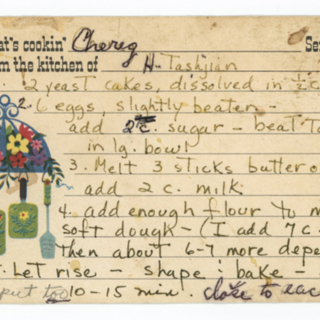 at's cookin' Chereg Se
om the kitchen of H. Tashjian
2 yeast cakes, dissolved in ½ c
2. 6 eggs, slightly beaten –
add 2 c. sugar – beat To
in lg. bowl
3. Melt 3 sticks butter o
add 2 c. milk
4. add enough flour to m
soft dough – (I add 7 c.
then about 6-7 more depe
Let rise – shape : bake –
put too 10-15 min. close to eac